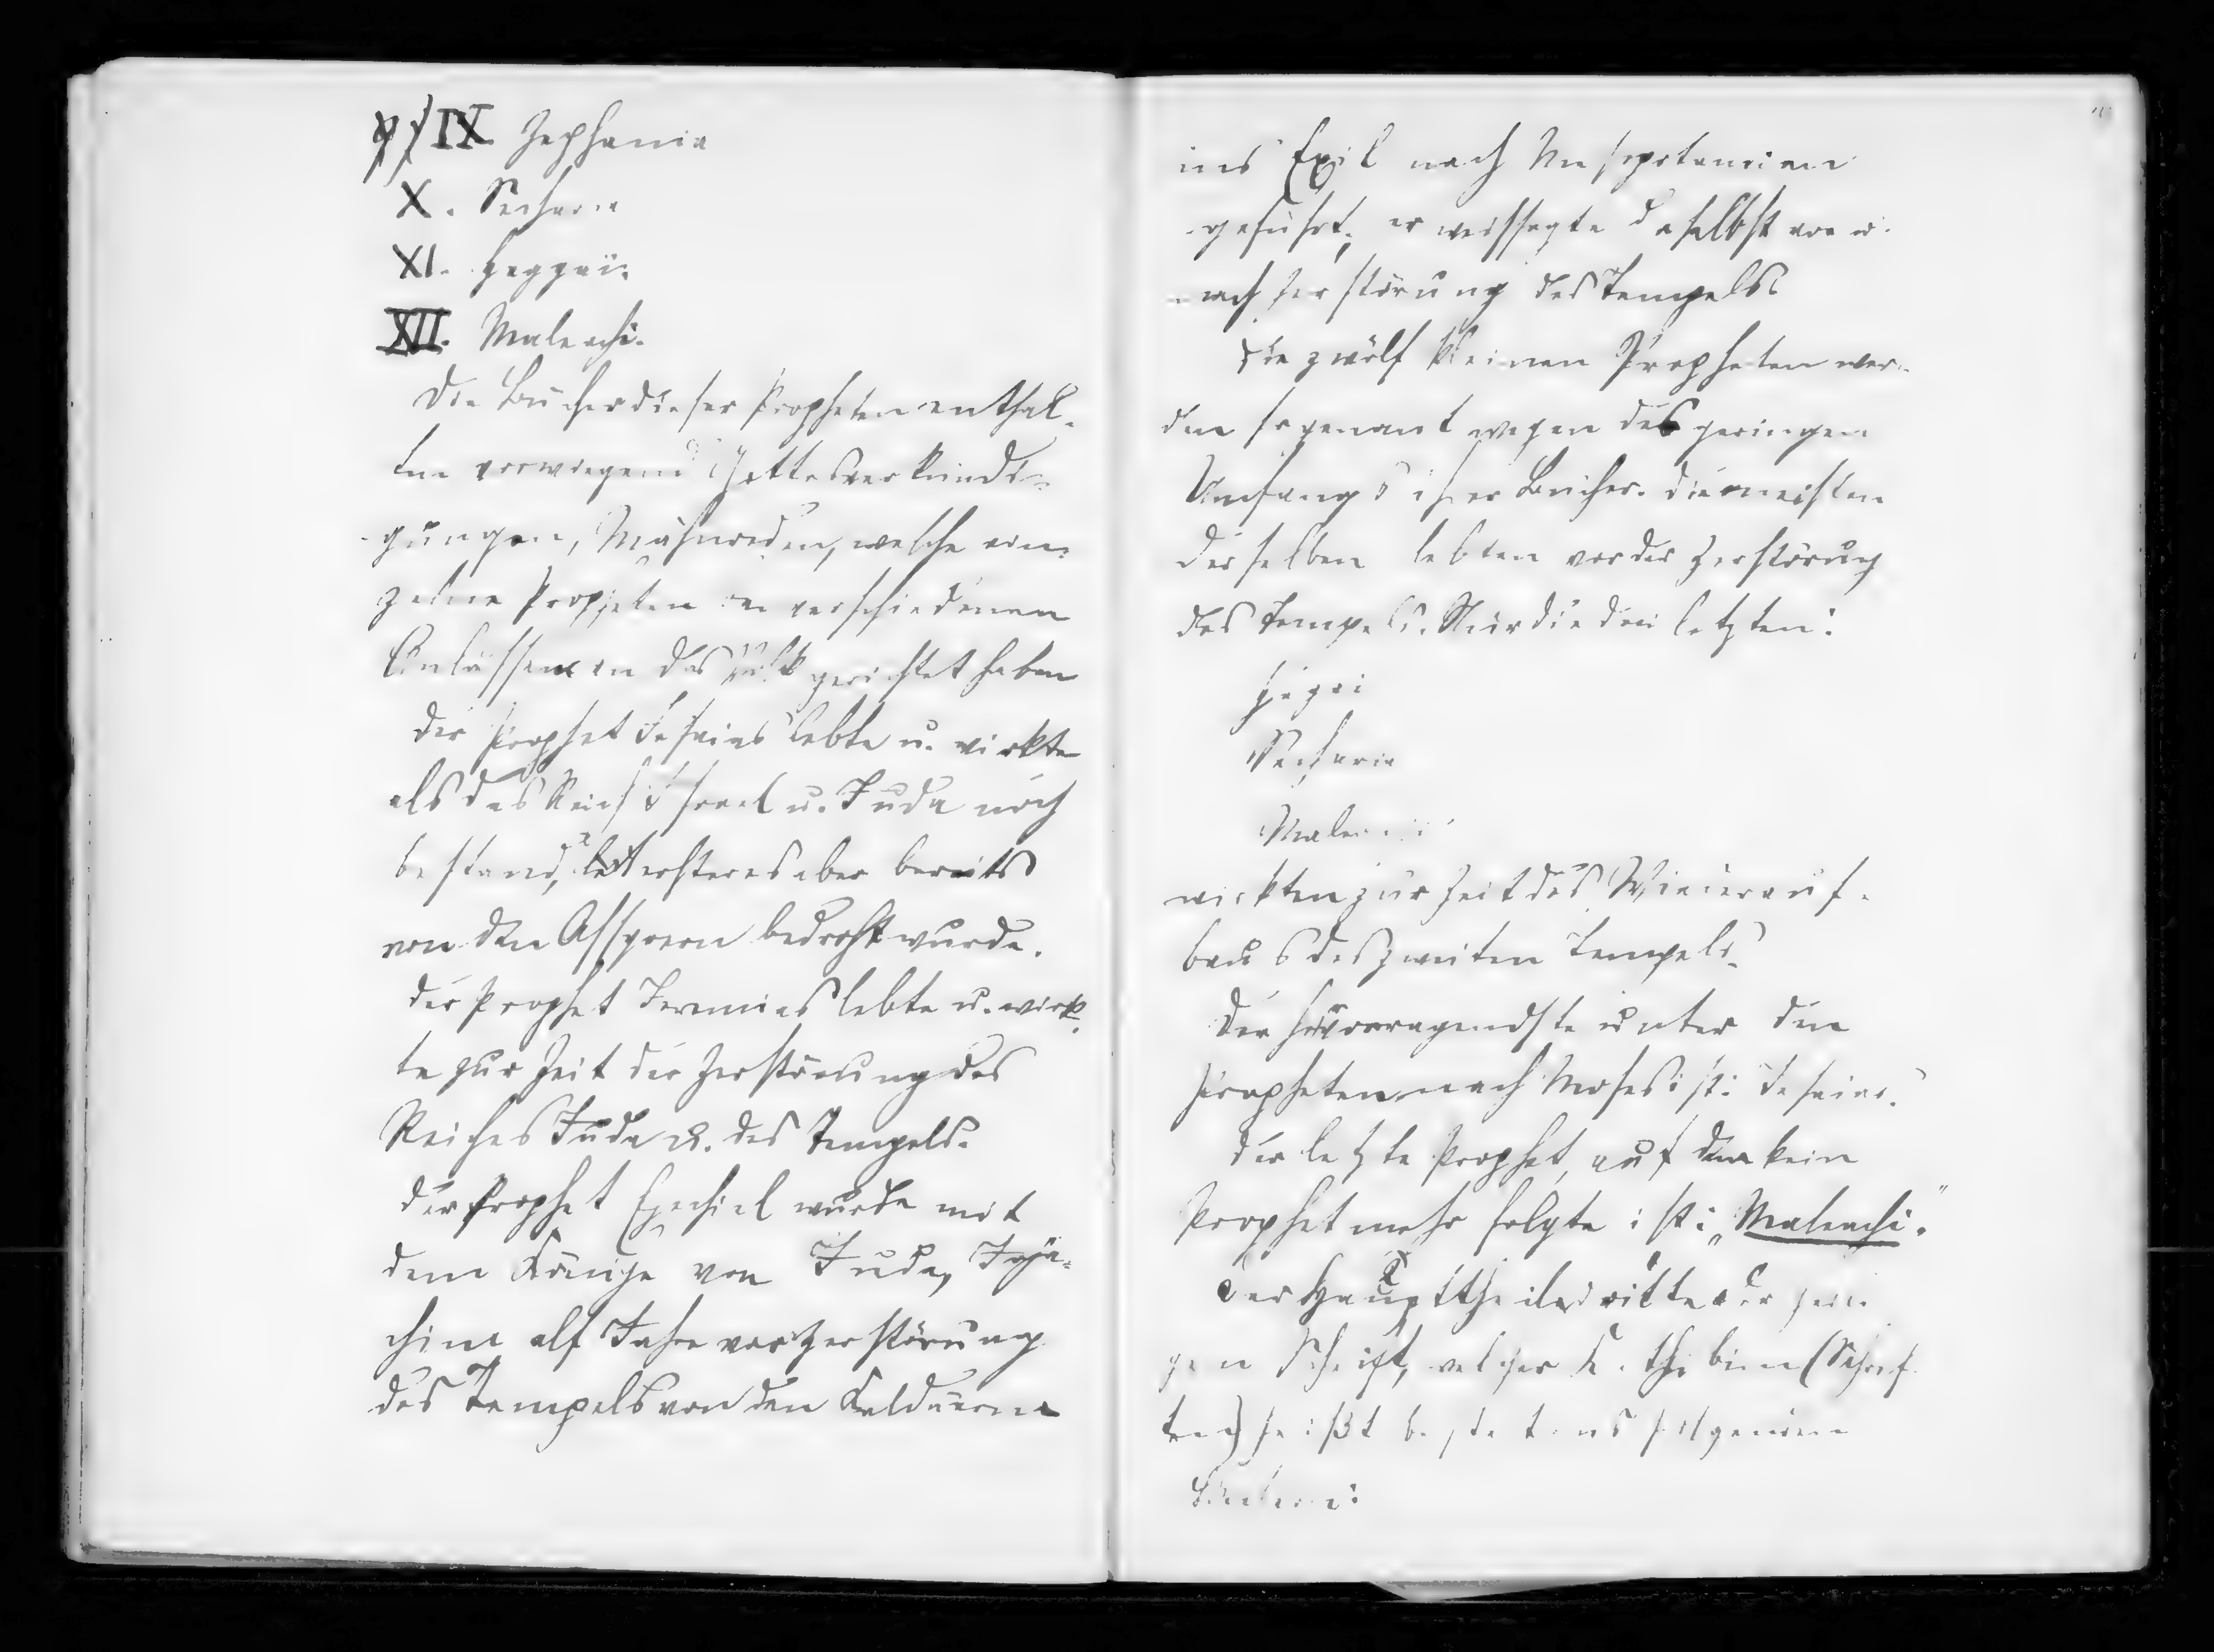 IX Zephania
X. Secharia
XI. Haggai.
XII. Maleachi.
Die Bücher dieser Propheten enthal-
ten vorwiegend Gottesverkündi-
gungen, Mahnreden, welche ein-
zelne Propheten an verschiedenen
Anlässen an das Volk gerichtet haben
Der Prophet Jesaias lebte u. wirkte
als das Reich Israel u. Juda noch
bestand, ersteres aber bereits
von den Assyrern bedroht wurde.
Der Prophet Jeremias lebte u. wirk-
te zur Zeit der Zerstörung des
Reiches Juda u. des Tempels.
Der Prophet Ezechiel wurde mit
dem Könige von Juda, Joja-
chim elf Jahre vor Zerstörung
des Tempels von den Kaldäern
ins Exil nach Mesopotamien
geführt; er weissagte daselbst vor u.
nach Zerstörung des Tempels
Die zwölf kleinen Propheten wer-
den so genant wegen des geringen
Umfangs ihrer Bücher. Die meisten
derselben lebten vor der Zerstörung
des Tempels. Nur die drei letzten:
Hagai
Secharia
Maleachi
wirkten zur Zeit des Wiederauf-
baus des zweiten Tempels.
Der hervorragendste unter den
Propheten nach Moses ist: Jesaias.
Der letzte Prophet, auf den kein
Prophet mehr folgte ist: „Maleachi."
Der Haupttheil dritte der heili-
gen Schrift, welcher (Schrif-
ten) heißt besteht aus folgenden
Büchern: